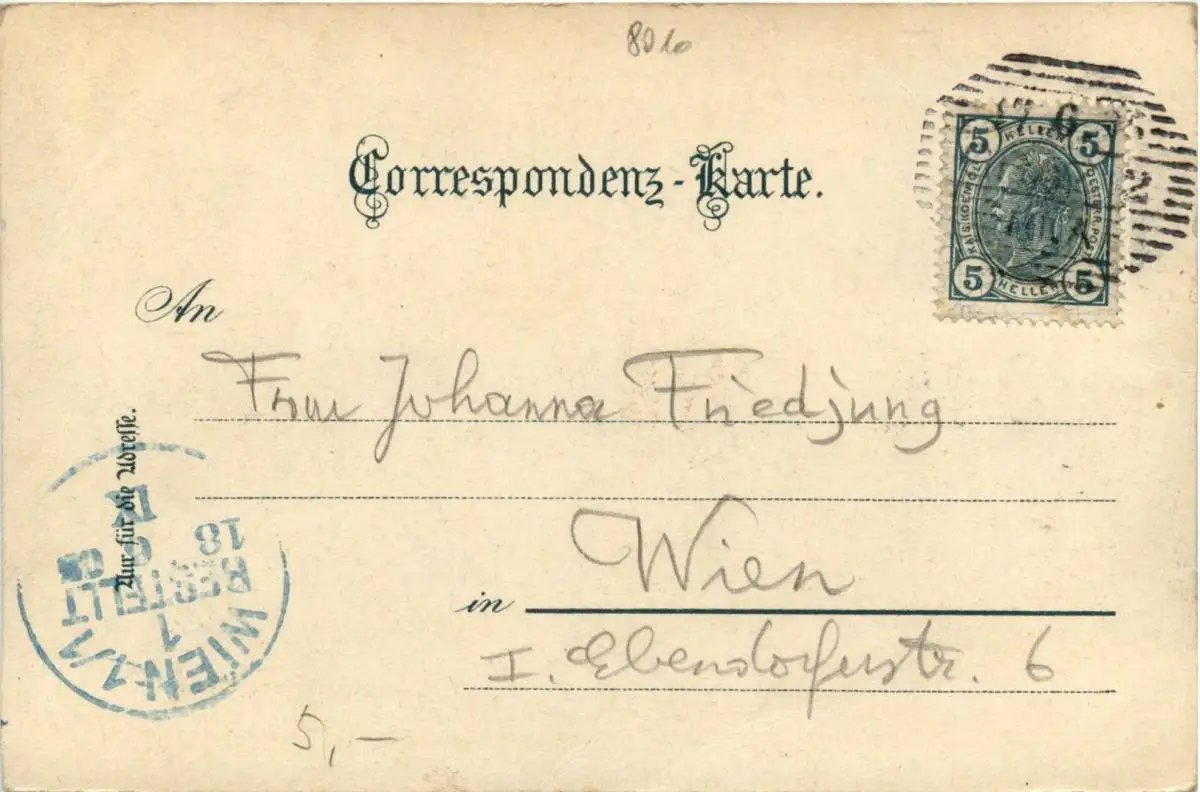 8010
Correspondenz-Karte.
5 HELLER 5
5 HELLER 5
An
Frau Johanna Friedjung
Nur für die Adresse.
Wien
in
I. Ebendorferstr. 6
18
BESTELLT
1
WIEN 1/1
5,-